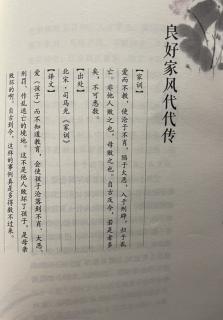 良好家风代代传
【家训】
爱而不教，使沦于不肖，陷于大恶，入于刑辟，归于乱
亡，非他人败之也，母败之也。自古及今，若是者多
矣，不可悉数。
【出处】
北宋·司马光《家训》
【译文】
爱（孩子）而不知道教育，会使孩子沦落到不肖、大恶、
刑罚、作乱逃亡的境地。这不是他人败坏了孩子，是母亲
败坏的啊。自古到今，这样的事例真是多得数不过来。